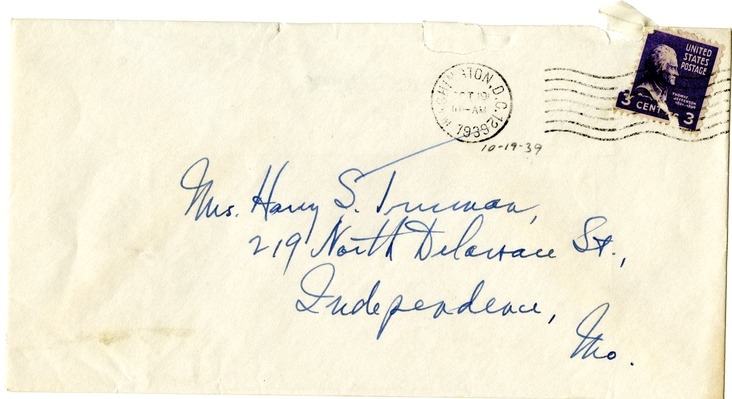 WASHINGTON, D.C. 12
OCT 19
-AM
1939
UNITED
STATES
POSTAGE
THOMAS
JEFFERSON
3 CENTS 3
10-19-39
Mrs. Harry S. Truman,
219 North Delaware St.,
Independence,
Mo.